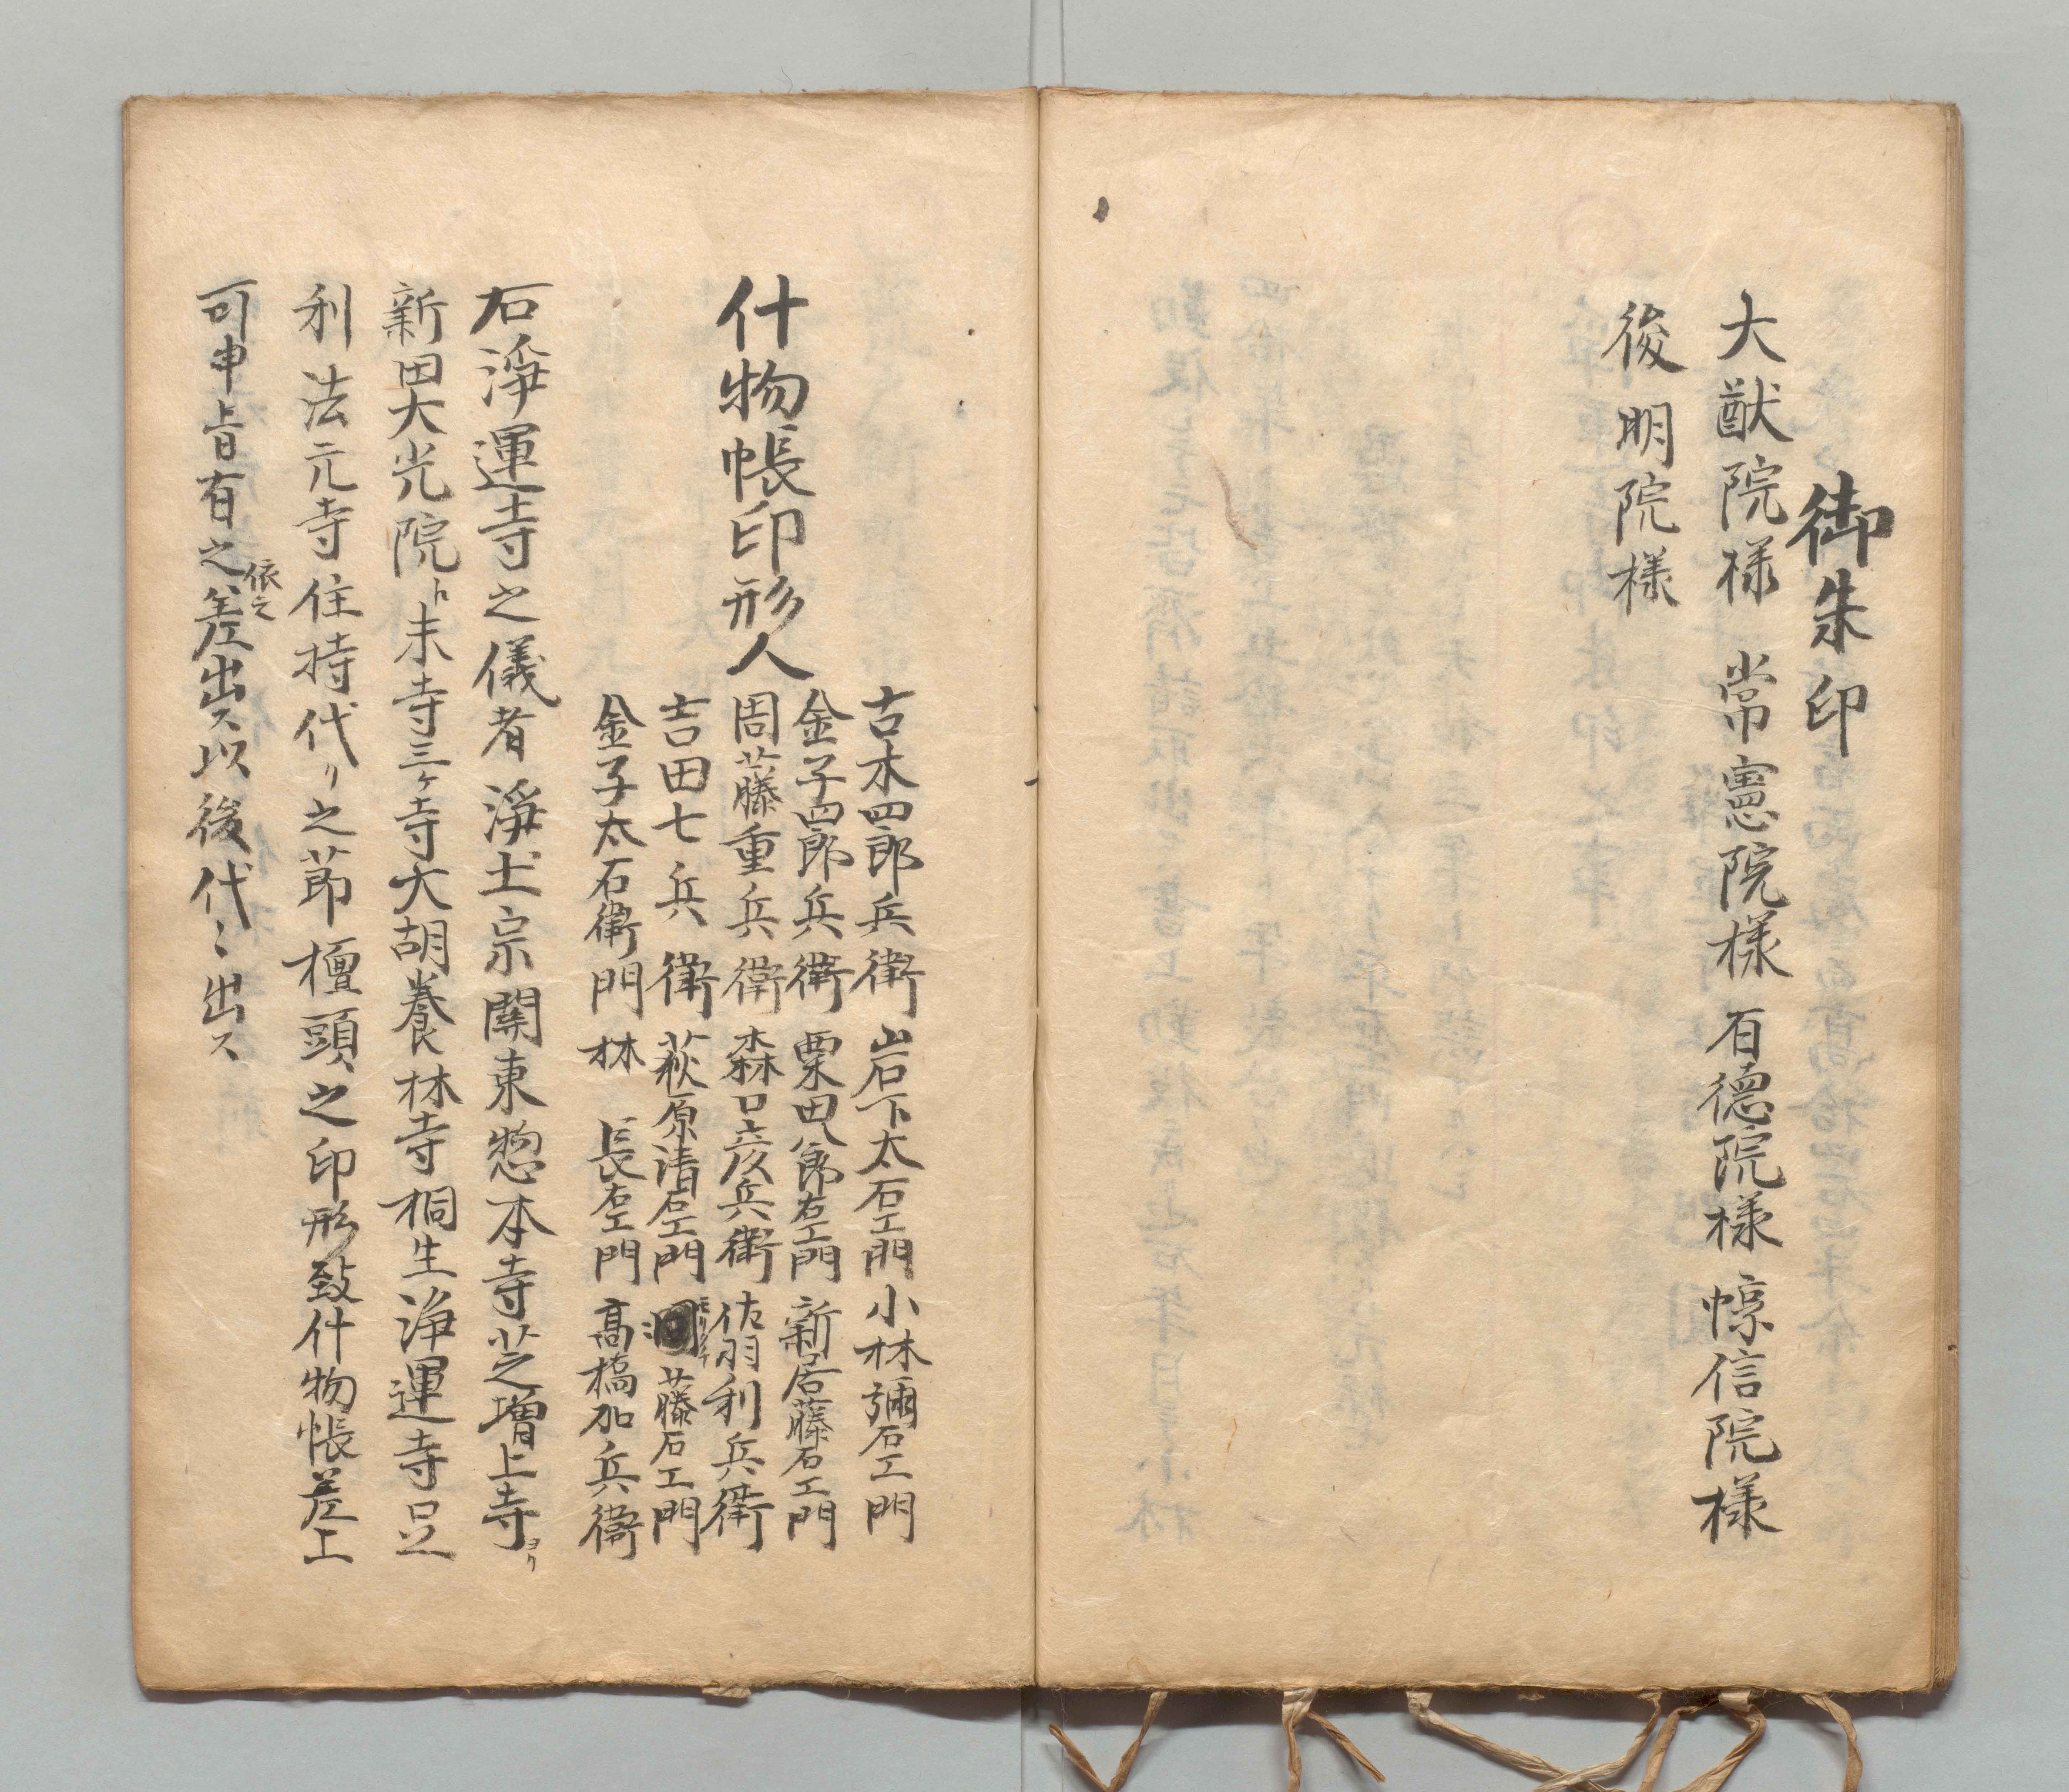 御朱印
大猷院様 常憲院様 有德院様 惇信院様
後明院様
什物帳印形人
古木四郎兵衛 岩下太右エ門 小林彌右エ門
金子四郎兵衛 粟田八郎右エ門 新居藤右エ門
周藤重兵衛 森口彦兵衛 佐羽利兵衛
吉田七兵衛 荻原清右エ門 藤右エ門
金子太右衛門 林 長右エ門 髙橋加兵衛
右淨運寺之儀者淨土宗關東惣本寺芝增上寺ヨリ
新田大光院ト末寺三ヶ寺大胡養林寺桐生淨運寺足
利法元寺住持代リ之節檀頭之印形致什物帳差上
可申上旨有之依之差出ス以後代々出ス